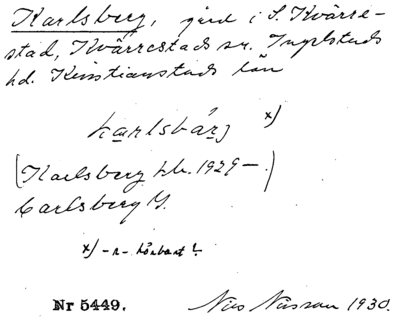 Karlsberg, gård i S. Kvärre-
stad, Kvärrestads sn. Ingelstads
hd. Kristianstads län
karlsbárj x)
(Karlsberg hbr. 1929 – )
Carlsberg
x) -r- hörbart!
Nr 5449.
Nils Nilsson 1930.